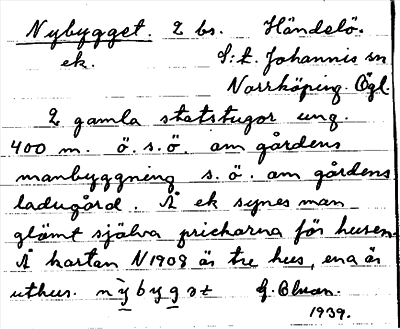 Nybygget. 2 bs. Händelö.
ek. S:t. Johannis sn
Norrköping. Ögl.
2 gamla statstugor ung.
400 m. ö. s. ö. om gårdens
manbyggning s. ö. om gårdens
ladugård. Å ek synes man
glömt själva prickarna för husen.
Å kartan N 1909 är tre hus, ena är
uthus. nỳbyg̱ət G.
1939.